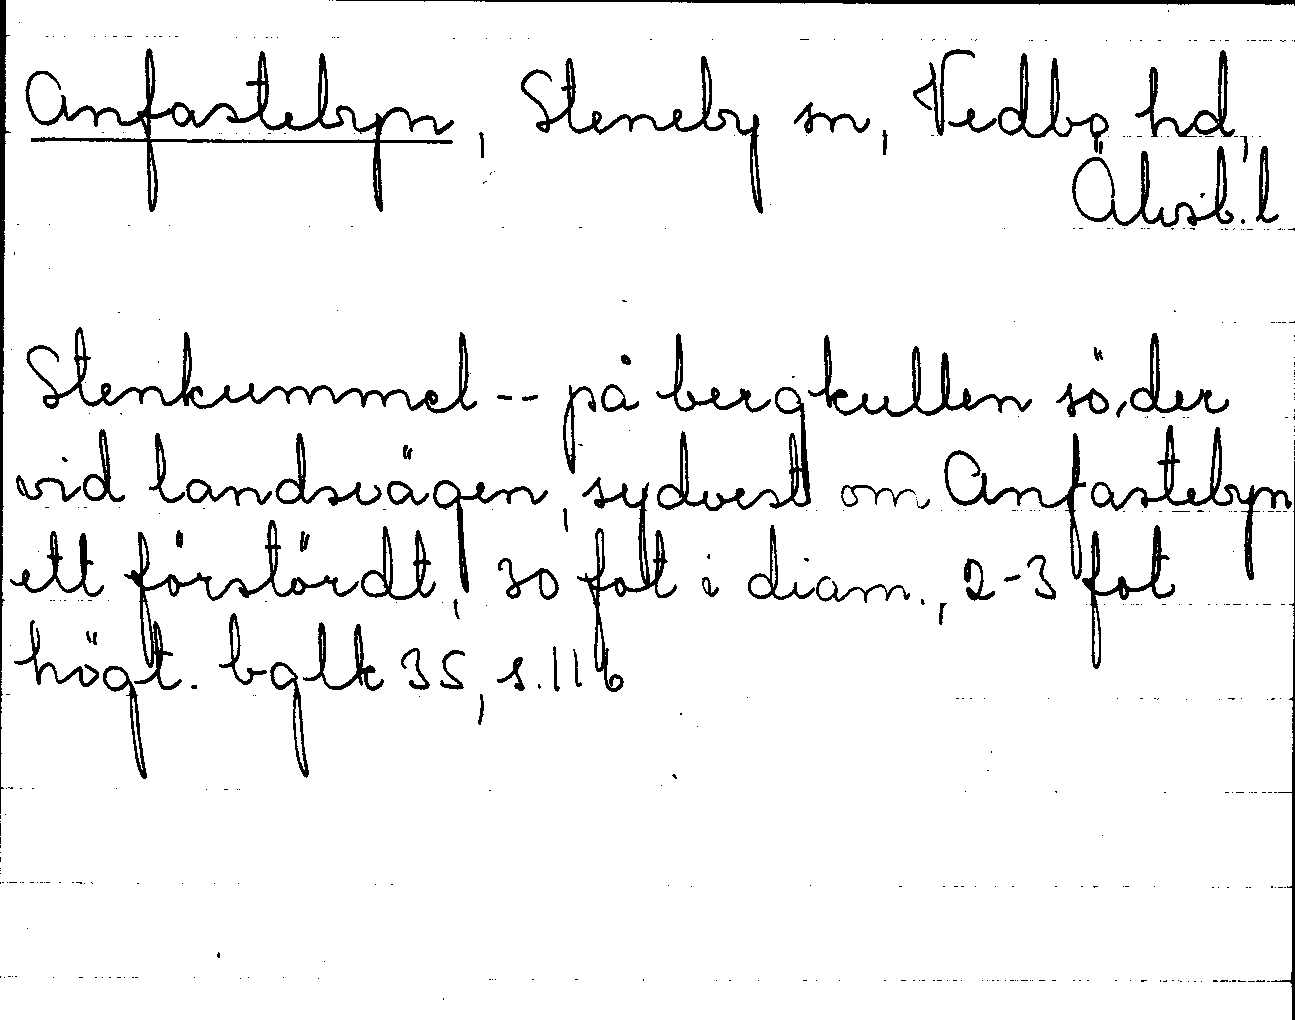 Anfastebyn, Steneby sn, Vedbo hd,
Älvsb. l
Stenkummel -- på bergkullen söder
vid landsvägen, sydvest om Anfastebyn
ett förstördt, 30 fot i diam., 2-3 fot
högt. bglk 35, s. 116